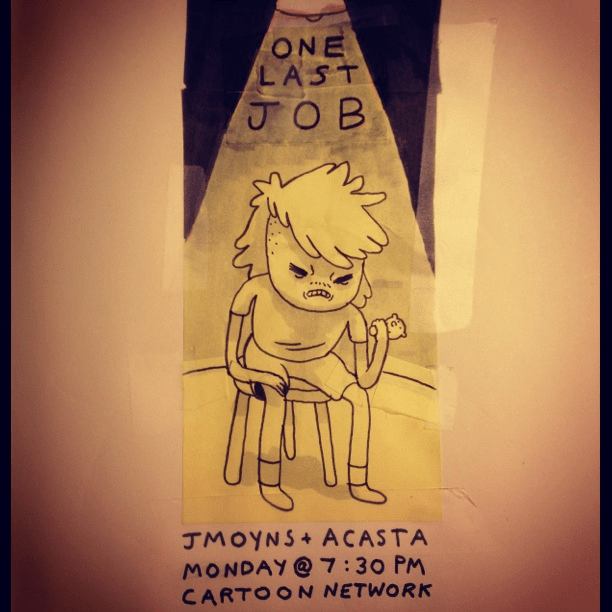 ONE
LAST
JOB
JMOYNS + ACASTA
MONDAY @ 7:30 PM
CARTOON NETWORK